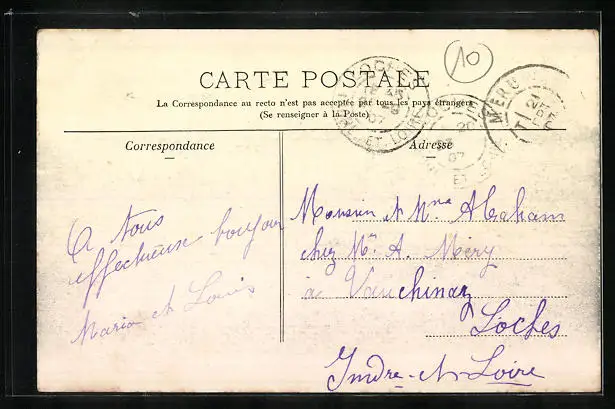 10
CARTE POSTALE
La Correspondance au recto n'est pas acceptée par tous les pays étrangers
(Se renseigner à la Poste)
Correspondance
Adresse
LOCHES
ET LOIRE
21
07
20
07
ET
A tous
affectueux bonjour
Maria et Louis
Monsieur et Mme Abraham
chez Mr A. Méry
à Vauchinay
Loches
Indre-et-Loire